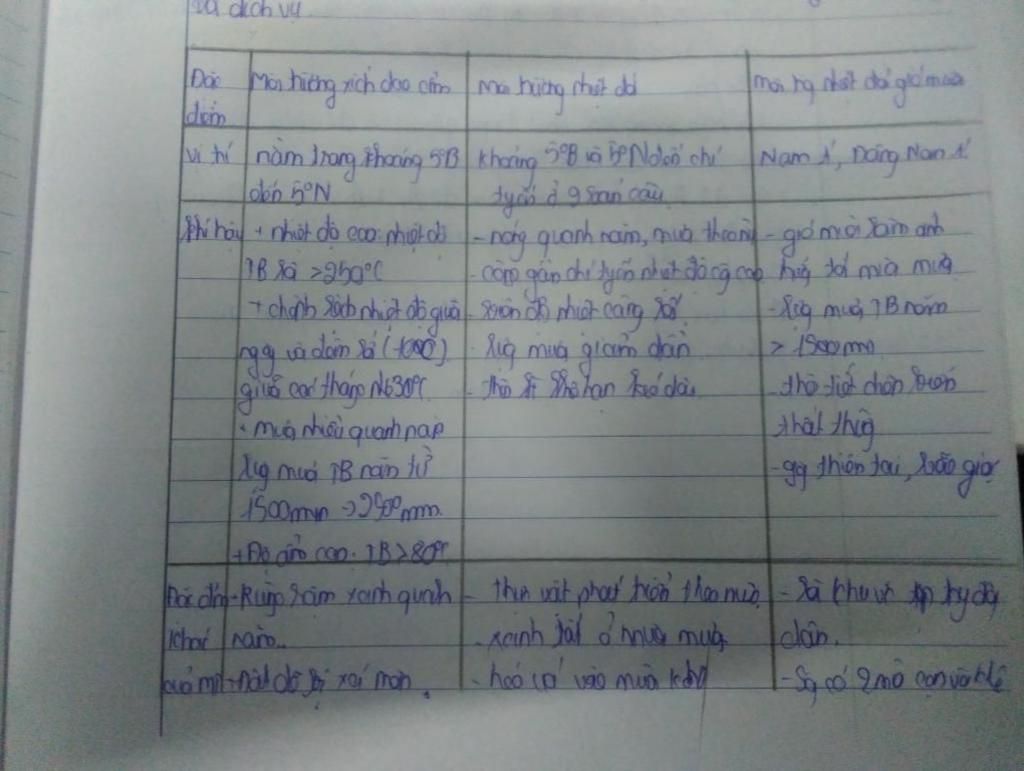 và dịch vụ
Đặc điểm
Môi trường xích đạo ẩm
Môi trường nhiệt đới
Môi trg nhiệt đới gió mùa
Vị trí
nằm trong khoảng 5°B
đến 5°N
khoảng 5°B và 5°N đến chí
tuyến ở 2 bán cầu
Nam Á, Đông Nam Á
Khí hậu
+ nhiệt độ cao: nhiệt độ
TB là >250°C
+ chênh lệch nhiệt độ giữa
ngày và đêm
giữa các tháng
mưa nhiều quanh năm
lượng mưa TB năm từ
1500mm → 2500mm
+ Độ ẩm cao. TB > 80%
- nóng quanh năm, mưa theo
- càng gần chí tuyến nhiệt độ
biên độ nhiệt càng
- lượng mưa giảm dần
- khô hạn kéo dài
- gió mùa làm ảnh
hưởng tới mùa mưa
- lượng mưa TB năm
> 1500mm
- thời tiết diễn biến
thất thường
- thiên tai, bão gió
Đặc điểm
khác
của mt
- Rừng rậm xanh quanh
năm.
xói mòn
- thực vật phát triển theo mùa
- xanh tốt ở mùa mưa
- héo úa vào mùa khô
- là khu vực tập trung đông
dân.
- có 2 mùa